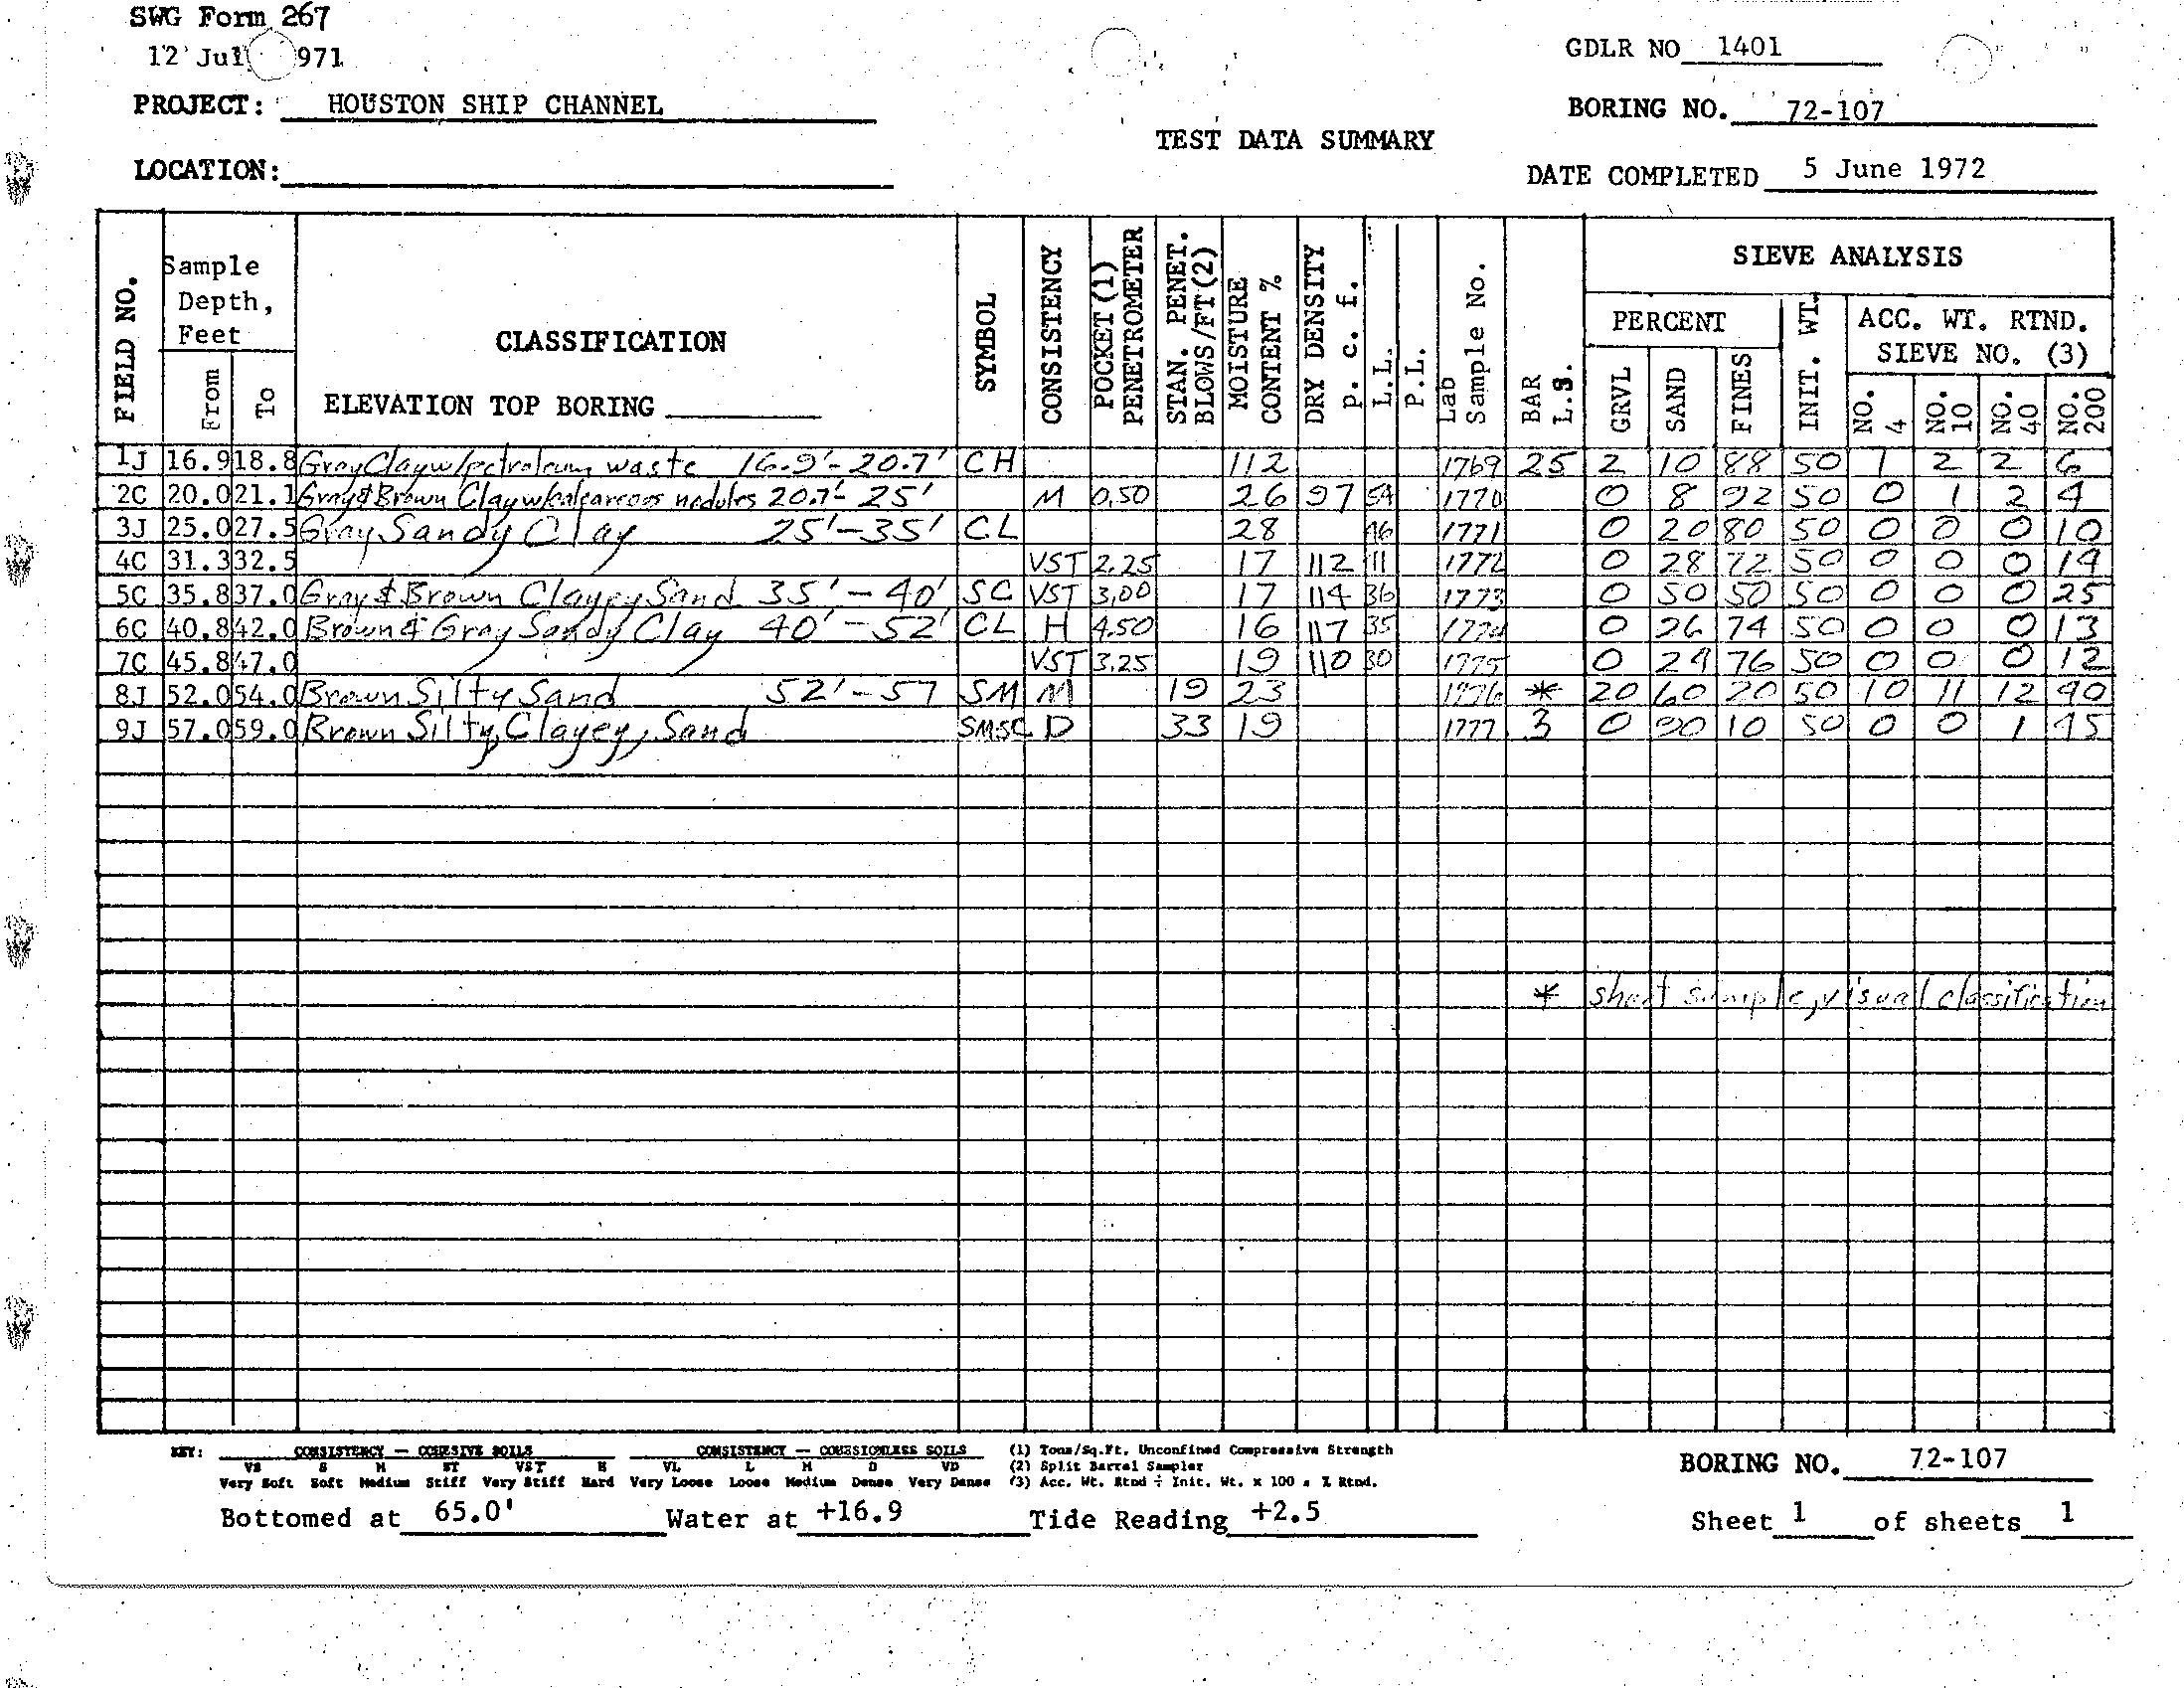 SWG Form 267
12 Jul 971
GDLR NO 1401
PROJECT: HOUSTON SHIP CHANNEL
BORING NO. 72-107
TEST DATA SUMMARY
LOCATION:
DATE COMPLETED 5 June 1972
FIELD NO.
Sample Depth, Feet
From
To
CLASSIFICATION
ELEVATION TOP BORING
SYMBOL
CONSISTENCY
POCKET (1) PENETROMETER
STAN. PENET. BLOWS/FT (2)
MOISTURE CONTENT %
DRY DENSITY p. c. f.
L.L.
P.L.
Lab Sample No.
BAR L.S.
SIEVE ANALYSIS
PERCENT
GRVL
SAND
FINES
INIT. WT.
ACC. WT. RTND. SIEVE NO. (3)
NO. 4
NO. 10
NO. 40
NO. 200
1J 16.9 18.8 Gray Clay w/petroleum waste 16.9'-20.7' CH 112 1769 25 2 10 88 50 1 2 2 6
2C 20.0 21.1 Gray & Brown Clay w/calcareous nodules 20.7'-25' M 0.50 26 97 54 1770 0 8 92 50 0 1 2 4
3J 25.0 27.5 Gray Sandy Clay 25'-35' CL 28 46 1771 0 20 80 50 0 0 0 10
4C 31.3 32.5 VST 2.25 17 112 1772 0 28 72 50 0 0 0 14
5C 35.8 37.0 Gray & Brown Clayey Sand 35'-40' SC VST 3.00 17 114 36 1773 0 50 50 50 0 0 0 25
6C 40.8 42.0 Brown & Gray Sandy Clay 40'-52' CL H 4.50 16 117 35 1774 0 26 74 50 0 0 0 13
7C 45.8 47.0 VST 3.25 19 110 30 1775 0 24 76 50 0 0 0 12
8J 52.0 54.0 Brown Silty Sand 52'-57 SM M 19 23 1776 * 20 60 20 50 10 11 12 40
9J 57.0 59.0 Brown Silty, Clayey, Sand SMSC D 33 19 1777 3 0 90 10 50 0 0 1 45
* short sample, visual classification
KEY: CONSISTENCY — COHESIVE SOILS CONSISTENCY — COHESIONLESS SOILS (1) Tons/Sq.Ft. Unconfined Compressive Strength
VS S M ST VST H VL L M D VD (2) Split Barrel Sampler
Very Soft Soft Medium Stiff Very Stiff Hard Very Loose Loose Medium Dense Very Dense (3) Acc. Wt. Rtnd ÷ Init. Wt. x 100 = % Rtnd.
BORING NO. 72-107
Bottomed at 65.0' Water at +16.9 Tide Reading +2.5
Sheet 1 of sheets 1